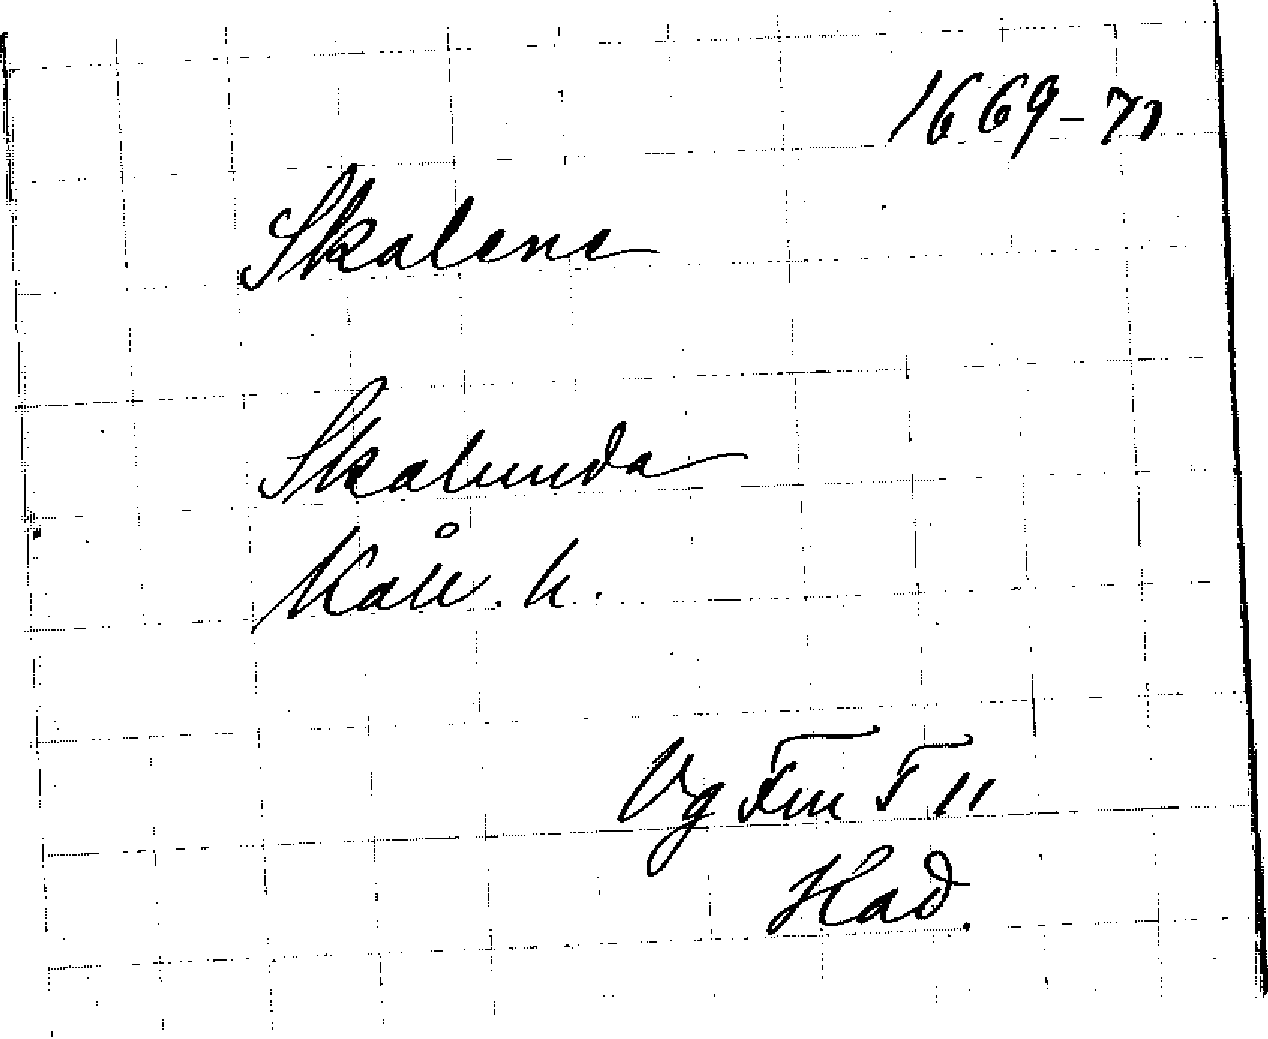 1669-71
Skalene
Skalunda
Kåll. h.
Vg Fm F 11
Had.